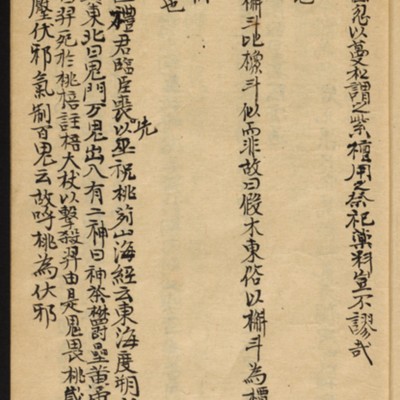 忽以蔓松謂之紫檀用之祭祀藥料豈不謬哉
槲斗比橡斗似而非故曰假木東俗以槲斗為橿
也
禮君臨臣喪以巫祝桃茢山海經云東海度朔
先
東北曰鬼門万鬼出入有二神曰神荼欝壘黃
羿死於桃棓註棓大杖以擊殺羿由是鬼畏桃
壓伏邪氣制百鬼云故呼桃為伏邪